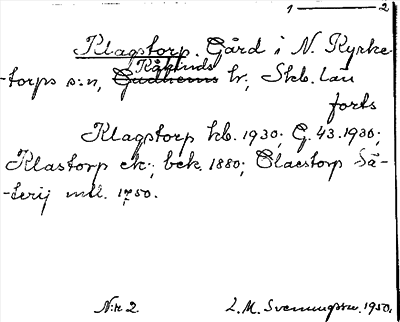 1 — 2
Klagstorp. Gård i N. Kyrke-
-torps s:n, Kåkinds hr; Skb. län
forts
Klagstorp kb. 1930; G. 43. 1930;
Klastorp ek.; bek. 1880; Claestorp Sä-
-terij mtl. 1750.
N:r 2. L. M. Svenungssn. 1950.